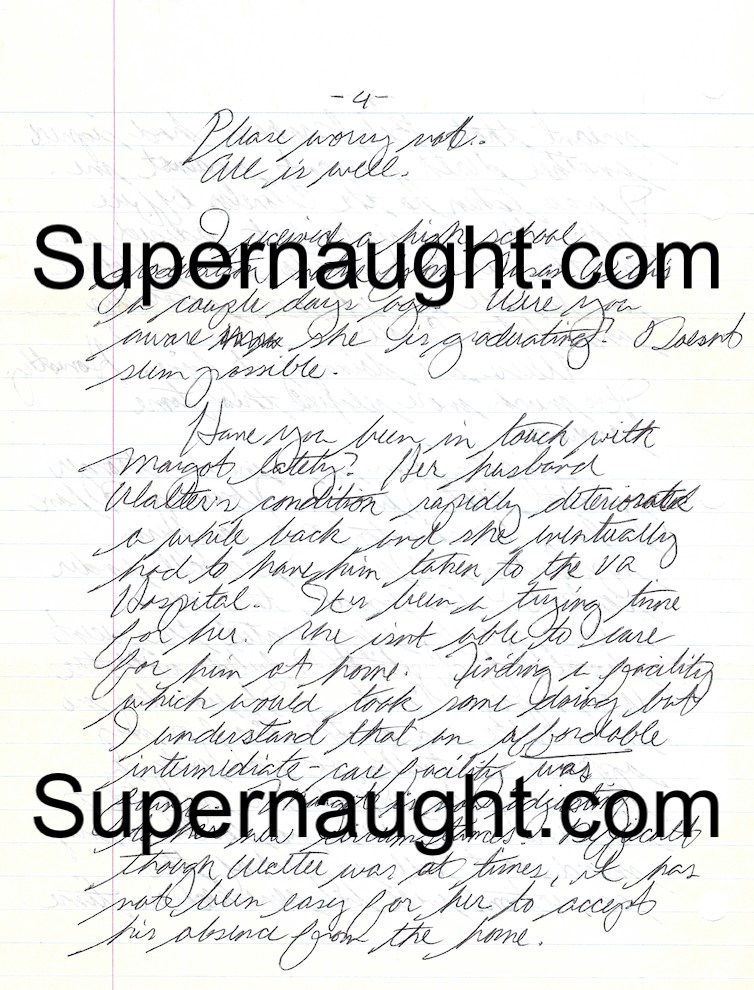 -4-
Please worry not..
All is well.
I received a high school
Supernaught.com
graduation from Susan
a couple days ago. Were you
aware she is graduating? Doesnt
seem possible.
Have you been in touch with
Margot lately? Her husband
Walter's condition rapidly deteriorated
a while back and she eventually
had to have him taken to the VA
Hospital. It's been a trying time
for her. She isnt able to care
for him at home. Finding a facility
which would took some doing but
I understand that an affordable
intermediate-care facility was
Supernaught.com
found. Margot is now adjusting
to her new circumstances. Difficult
though Walter was at times, it has
note been easy for her to accept
his absence from the home.